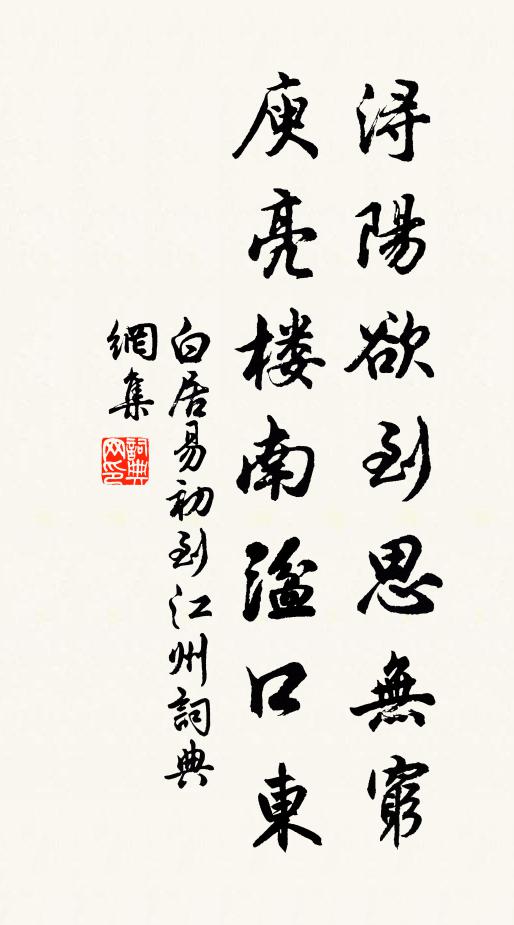 潯陽欲到思無窮
庾亮楼南湓口東
白居易初到江州詞典
網集
詞典
网印